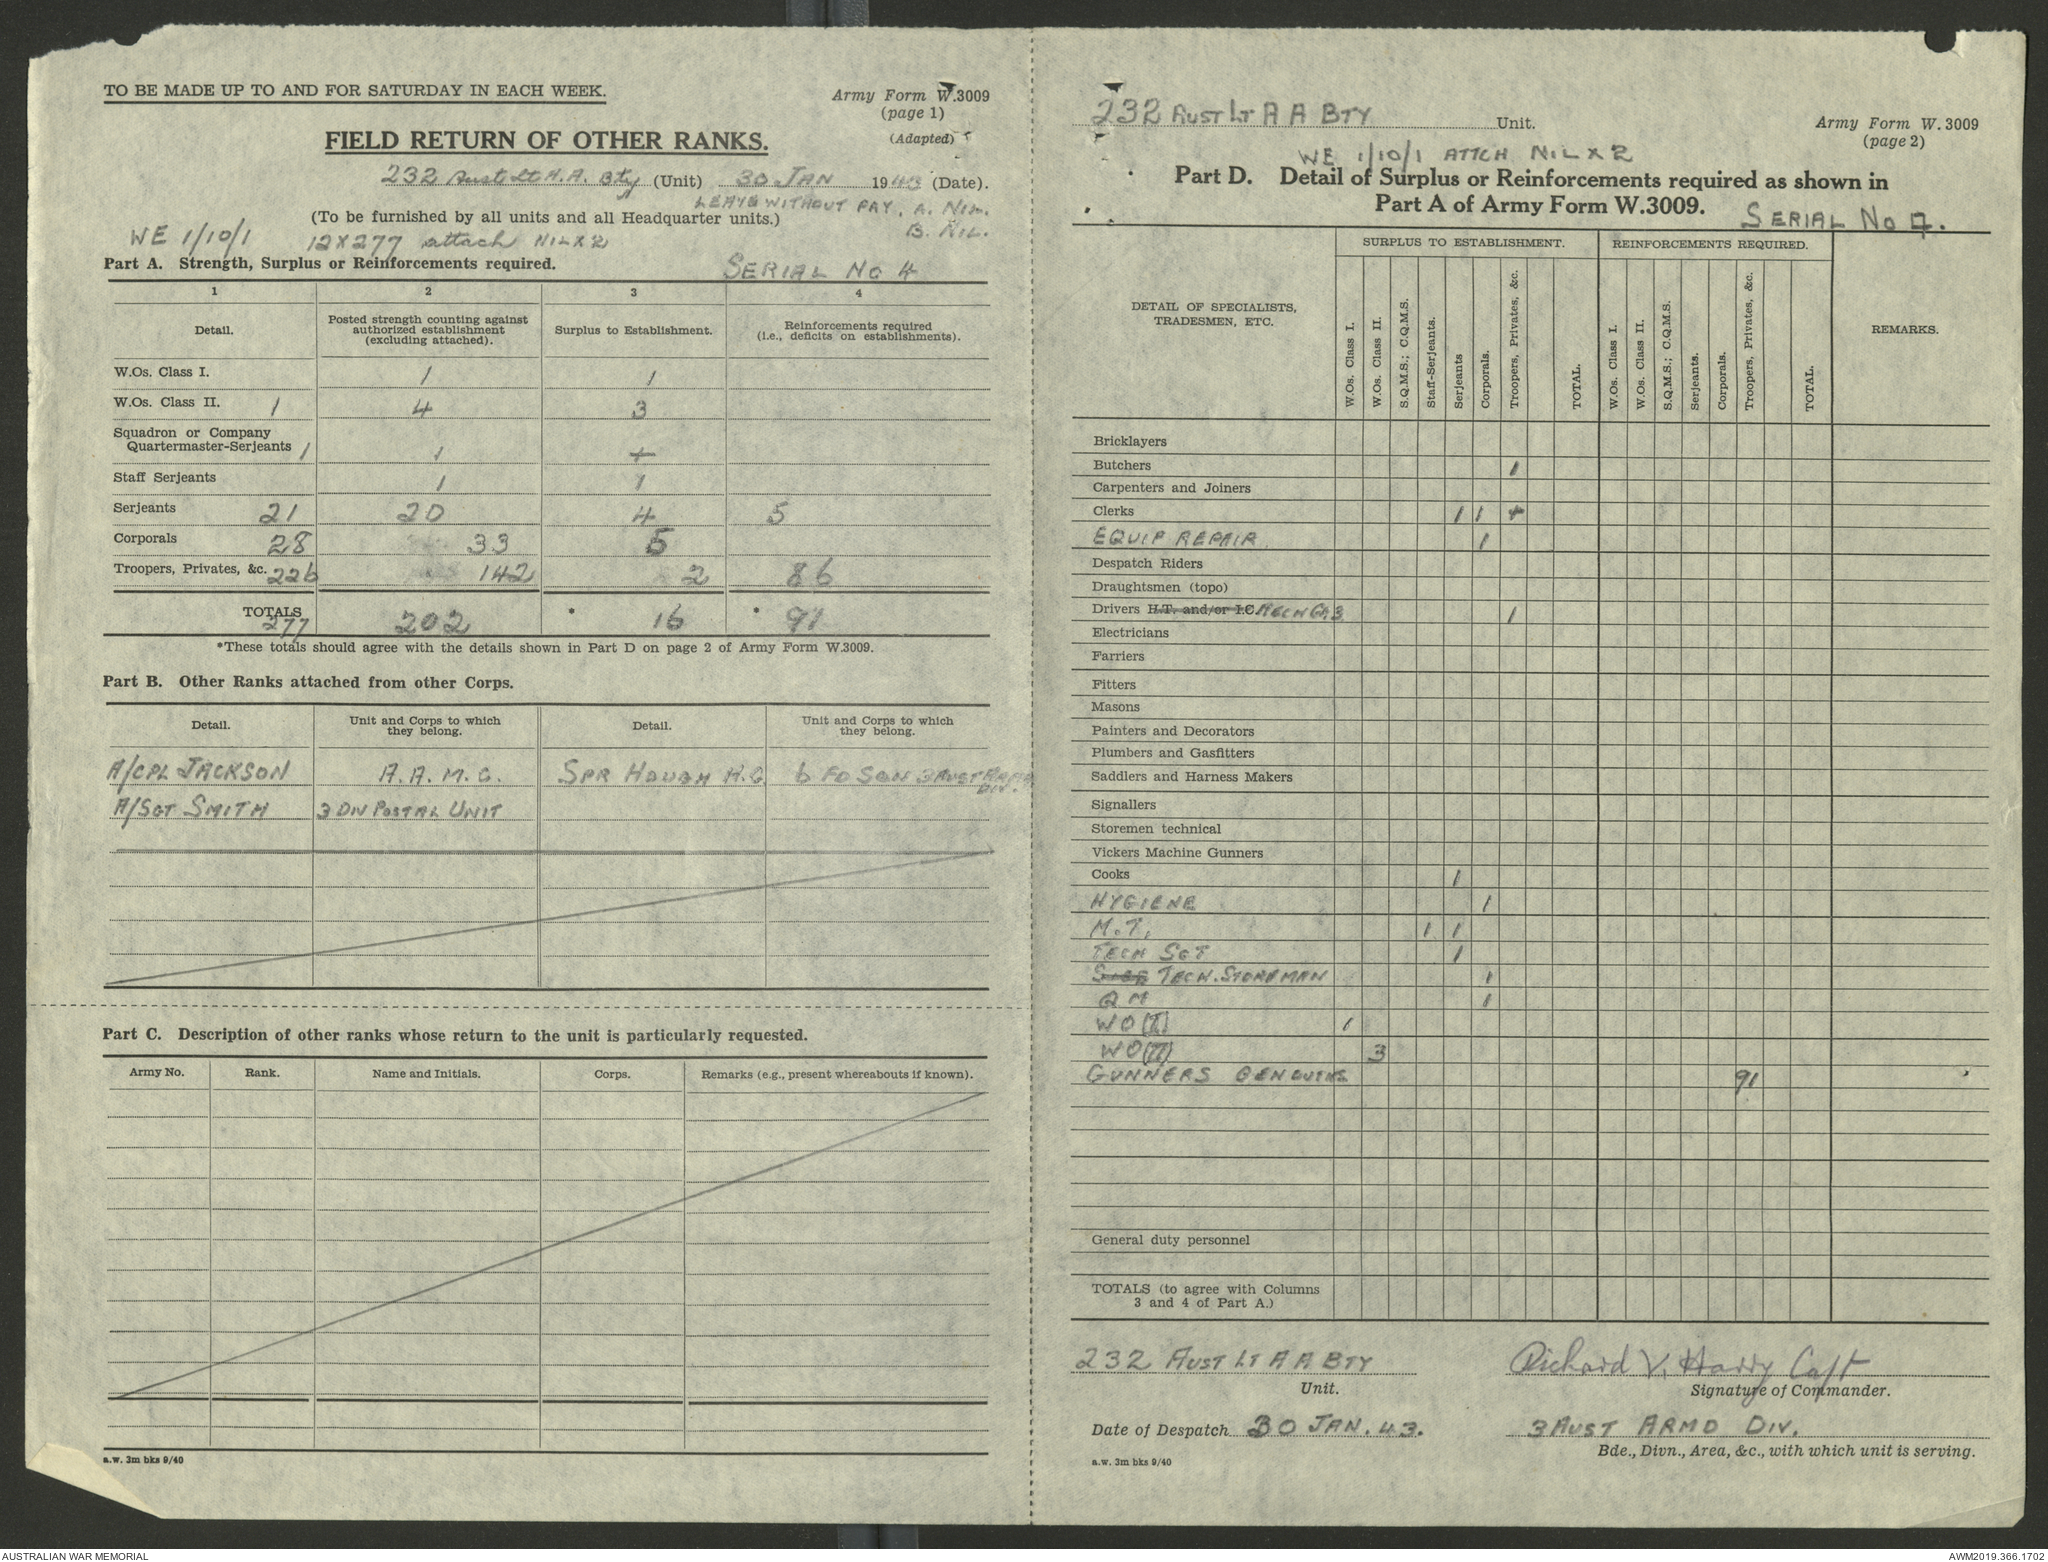 TO BE MADE UP TO AND FOR SATURDAY IN EACH WEEK.
Army Form W.3009
(page 1)
(Adapted)
FIELD RETURN OF OTHER RANKS.
232 Aust Lt A.A. Bty (Unit) 30 JAN 1943 (Date).
LEAVE WITHOUT PAY. A. NIL.
(To be furnished by all units and all Headquarter units.) B. NIL.
WE 1/10/1 12X277 attach NIL X 2
Part A. Strength, Surplus or Reinforcements required. SERIAL NO 4
1 2 3 4
Detail. Posted strength counting against authorized establishment (excluding attached). Surplus to Establishment. Reinforcements required (i.e., deficits on establishments).
W.Os. Class I. 1 1
W.Os. Class II. 1 4 3
Squadron or Company
Quartermaster-Serjeants 1 1 +
Staff Serjeants 1 1
Serjeants 21 20 4 5
Corporals 28 33 5
Troopers, Privates, &c. 226 142 2 86
TOTALS 277 202 * 16 * 91
*These totals should agree with the details shown in Part D on page 2 of Army Form W.3009.
Part B. Other Ranks attached from other Corps.
Detail. Unit and Corps to which they belong. Detail. Unit and Corps to which they belong.
A/CPL JACKSON A.A.M.C. SPR HOUGH H.G. 6 FD SQN 3 AUST ARMD DIV.
A/SGT SMITH 3 DIV POSTAL UNIT
Part C. Description of other ranks whose return to the unit is particularly requested.
Army No. Rank. Name and Initials. Corps. Remarks (e.g., present whereabouts if known).
a.w. 3m bks 9/40
232 AUST LT A A BTY Unit.
Army Form W. 3009
(page 2)
WE 1/10/1 ATTCH NIL X 2
Part D. Detail of Surplus or Reinforcements required as shown in
Part A of Army Form W.3009.
SERIAL NO 4.
SURPLUS TO ESTABLISHMENT. REINFORCEMENTS REQUIRED.
DETAIL OF SPECIALISTS, TRADESMEN, ETC.
W.Os. Class I. W.Os. Class II. S.Q.M.S.; C.Q.M.S. Staff-Serjeants. Serjeants Corporals. Troopers, Privates, &c. TOTAL. W.Os. Class I. W.Os. Class II. S.Q.M.S.; C.Q.M.S. Serjeants. Corporals. Troopers, Privates, &c. TOTAL. REMARKS.
Bricklayers
Butchers 1
Carpenters and Joiners
Clerks 1 1 +
EQUIP REPAIR 1
Despatch Riders
Draughtsmen (topo)
Drivers H.T. and/or I.C. MECH GP3 1
Electricians
Farriers
Fitters
Masons
Painters and Decorators
Plumbers and Gasfitters
Saddlers and Harness Makers
Signallers
Storemen technical
Vickers Machine Gunners
Cooks 1
HYGIENE 1
M.T. 1 1
TECH SGT 1
TECH. STOREMAN 1
QM 1
WO (I) 1
WO (II) 3
GUNNERS GEN DUTIES 91
General duty personnel
TOTALS (to agree with Columns
3 and 4 of Part A.)
232 AUST LT A A BTY Richard V. Hardy Capt
Unit. Signature of Commander.
Date of Despatch 30 JAN. 43. 3 AUST ARMD DIV.
Bde., Divn., Area, &c., with which unit is serving.
a.w. 3m bks 9/40
AUSTRALIAN WAR MEMORIAL
AWM2019.366.1702